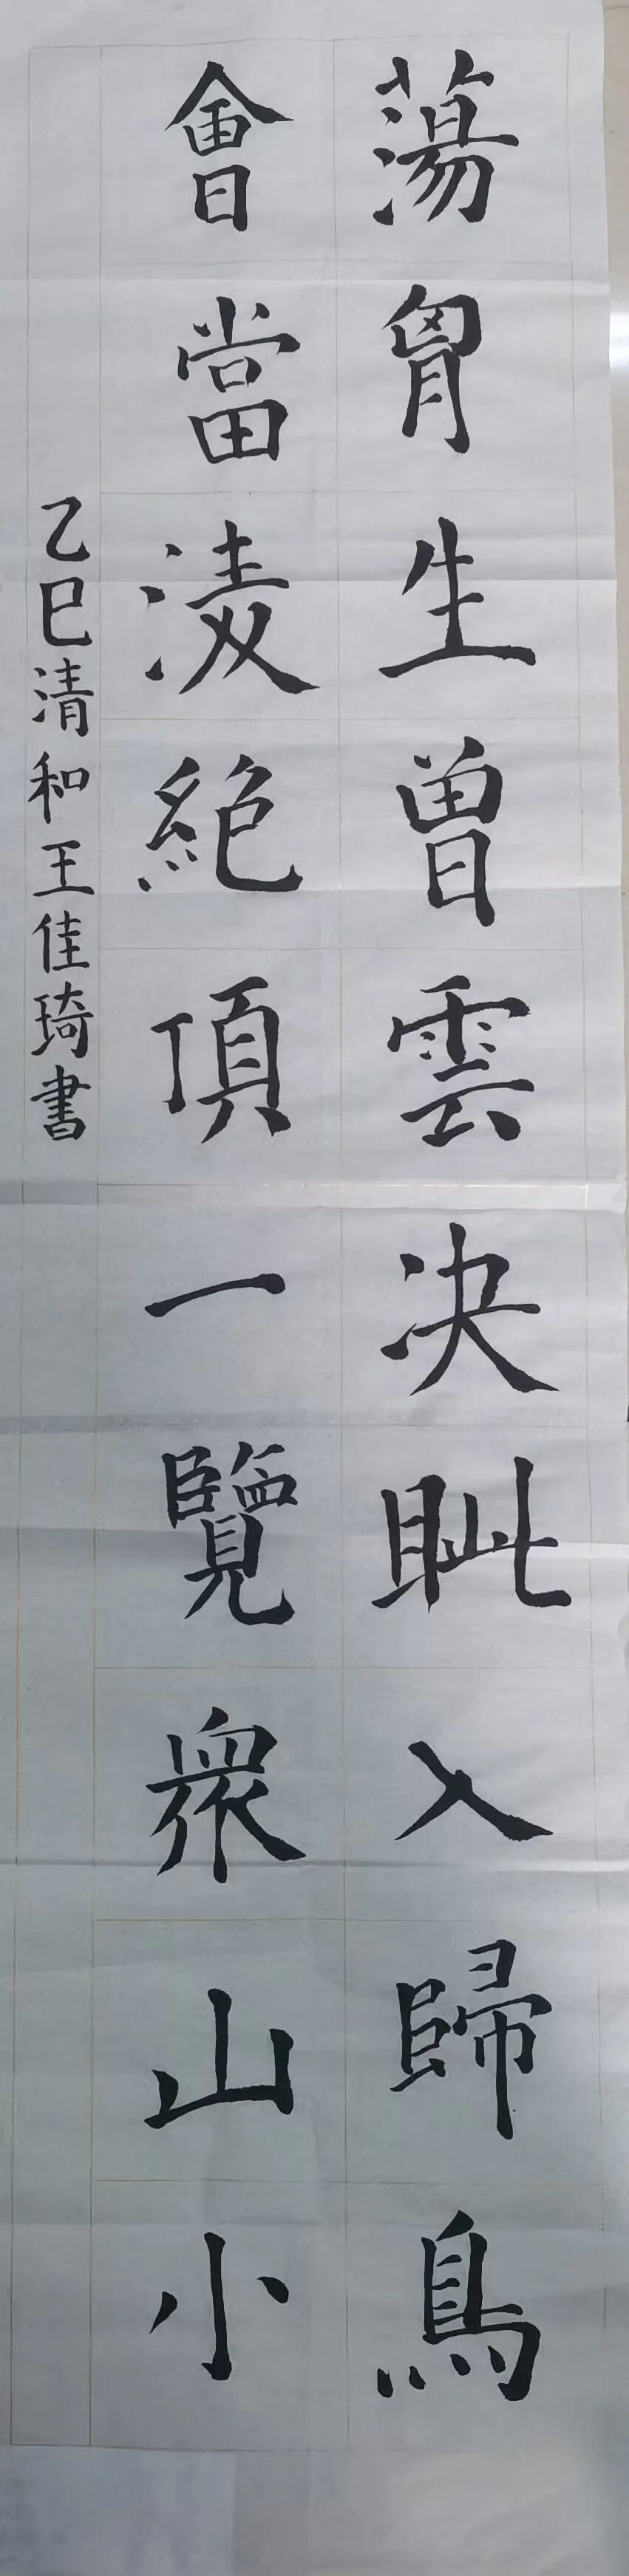 蕩胷生曾雲決眦入歸鳥
會當凌絕頂一覽眾山小
乙巳清和王佳琦書